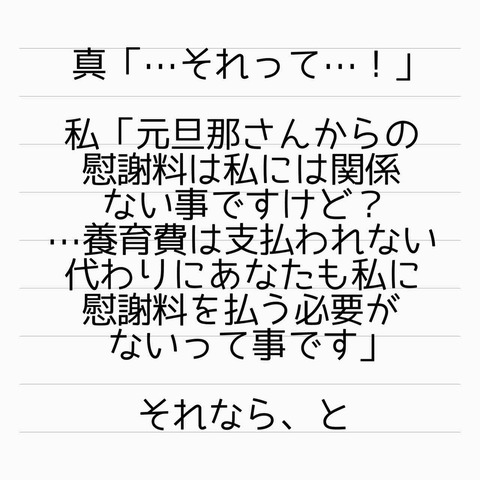 真「…それって…！」
私「元旦那さんからの
慰謝料は私には関係
ない事ですけど？
…養育費は支払われない
代わりにあなたも私に
慰謝料を払う必要が
ないって事です」
それなら、と